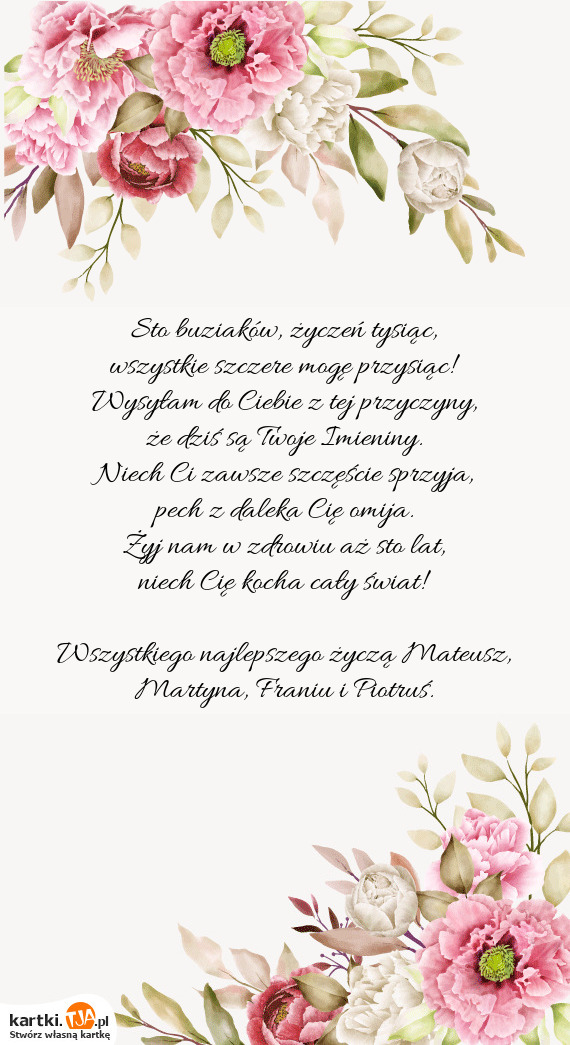 Sto buziaków, życzeń tysiąc,
wszystkie szczere mogę przysiąc!
Wysyłam do Ciebie z tej przyczyny,
że dziś są Twoje Imieniny.
Niech Ci zawsze szczęście sprzyja,
pech z daleka Cię omija.
Żyj nam w zdrowiu aż sto lat,
niech Cię kocha cały świat!
Wszystkiego najlepszego życzą Mateusz,
Martyna, Franiu i Piotruś.
kartki.TJA.pl
Stwórz własną kartkę